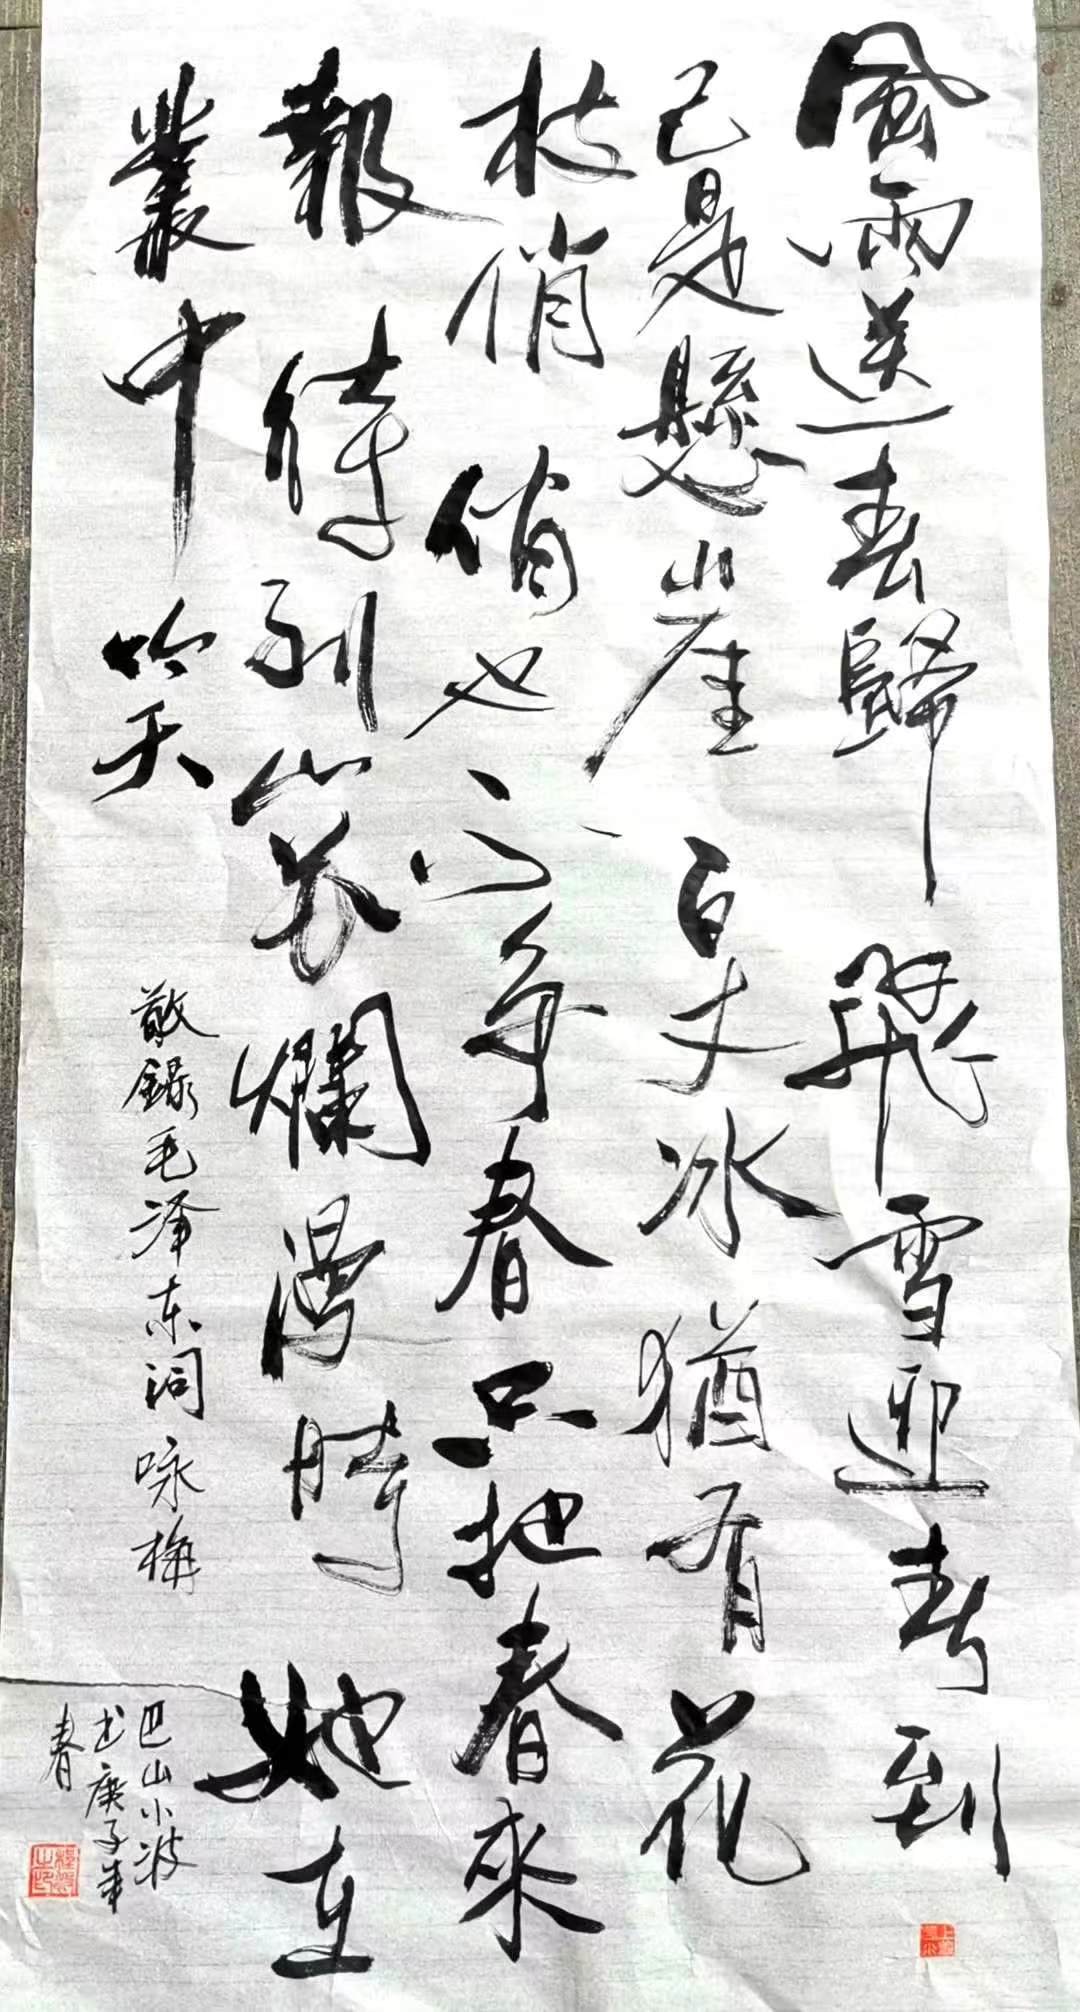 風雨送春歸飛雪迎春到
已是懸崖百丈冰猶有花
枝俏俏也不争春只把春來
報待到山花爛漫時她在
叢中笑
敬録毛泽东词咏梅
巴山小波
书庚子年
春